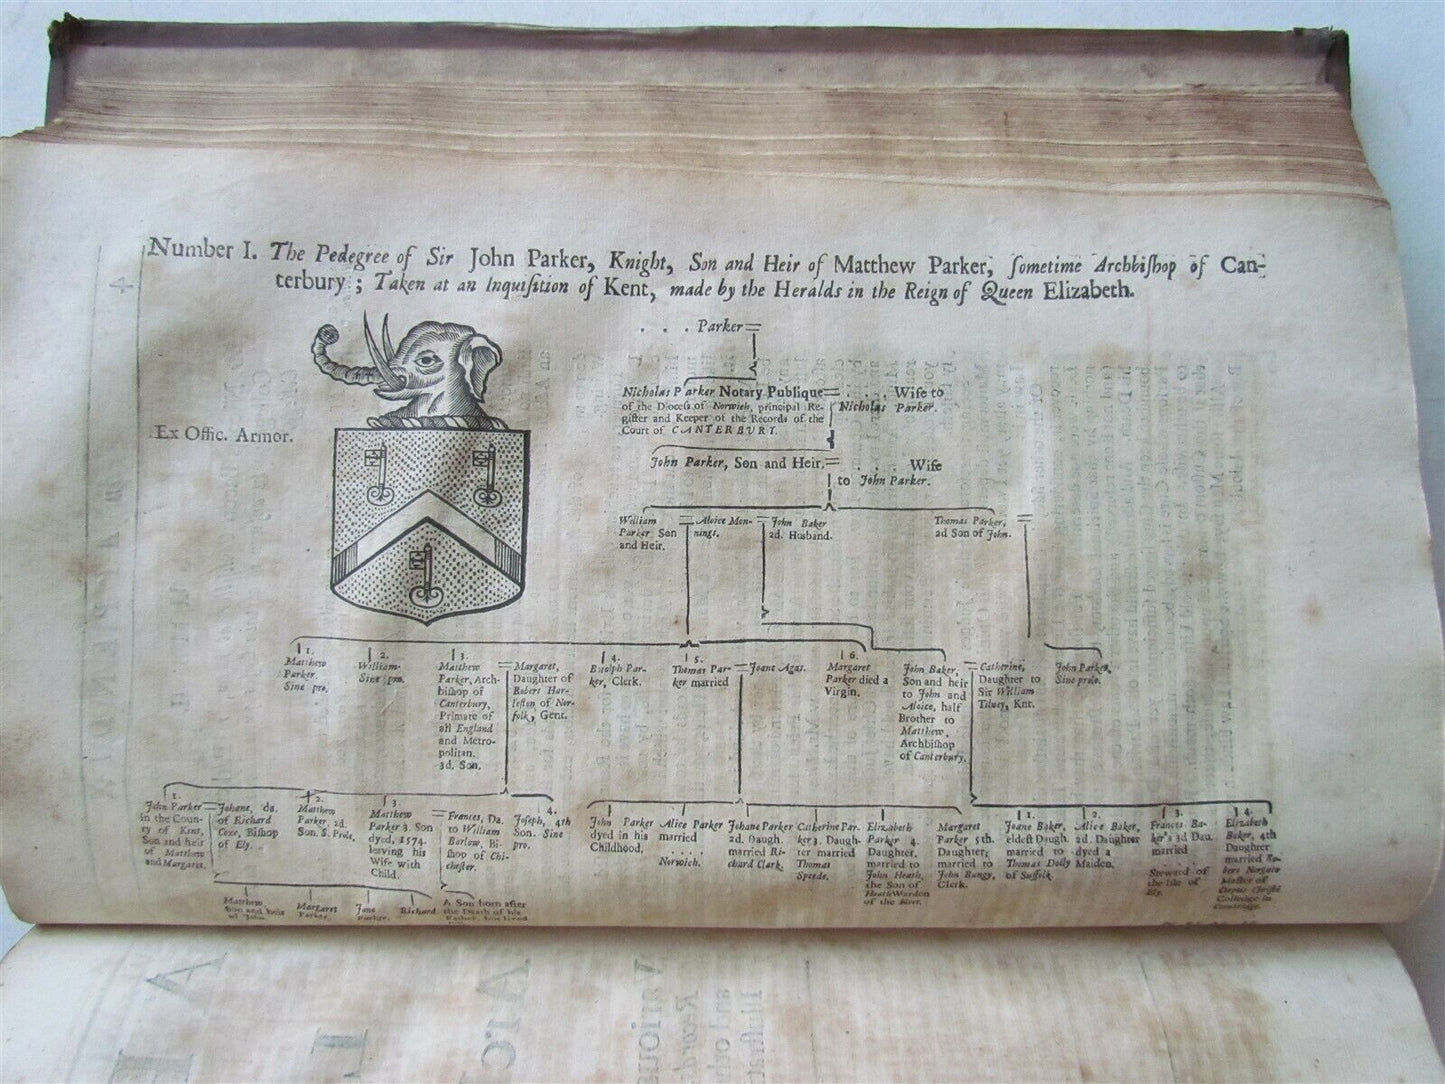 Number I. The Pedegree of Sir John Parker, Knight, Son and Heir of Matthew Parker, ſometime Archbiſhop of Can-
terbury ; Taken at an Inquiſition of Kent, made by the Heralds in the Reign of Queen Elizabeth.
. . . Parker=
Ex Offic. Armor.
Nicholas Parker Notary Publique=
of the Dioceſs of Norwich, principal Re-
giſter and Keeper of the Records of the
Court of CANTERBURY.
. . . . Wife to
Nicholas Parker.
John Parker, Son and Heir.=
. . . . Wife
to John Parker.
William
Parker Son
and Heir.
=
Aloice Mon-
nings.
=
John Baker
2d. Husband.
Thomas Parker,
2d Son of John.
=
1.
Matthew
Parker.
Sine pro.
2.
William
Sine pro.
3.
Matthew
Parker, Arch-
biſhop of
Canterbury,
Primate of
all England
and Metro-
politan.
3d. Son.
=
Margaret,
Daughter of
Robert Har-
leſton of Nor-
folk, Gent.
4.
Botolph Par-
ker, Clerk.
5.
Thomas Par-
ker married
=
Joane Agas.
6.
Margaret
Parker died a
Virgin.
John Baker,
Son and heir
to John and
Aloice, half
Brother to
Matthew,
Archbiſhop
of Canterbury.
=
Catherine,
Daughter to
Sir William
Tilney, Knt.
John Parker,
Sine prole.
1.
John Parker
in the Coun-
ty of Kent,
Son and heir
of Matthew
and Margaret.
=
Johane, da.
of Richard
Coxe, Biſhop
of Ely.
2.
Matthew
Parker, 2d.
Son. S. Prole.
3
Matthew
Parker 3. Son
dyed, 1574.
leaving his
Wife with
Child.
=
Frances, Da.
to William
Barlow, Bi-
ſhop of Chi-
cheſter.
4.
Joſeph, 4th
Son. Sine
pro.
John Parker
dyed in his
Childhood.
Alice Parker
married
. . . .
Norwich.
Johane Parker
2d. Daugh.
married Ri-
chard Clark.
Catherine Par-
ker 3. Daugh-
ter married
Thomas
Speede.
Elizabeth
Parker 4.
Daughter,
married to
John Heath,
the Son of
Heath Warden
of the River.
Margaret
Parker 5th.
Daughter,
married to
John Bungy,
Clerk.
1.
Joane Baker,
eldeſt Daugh.
married to
Thomas Doily
of Suffolk.
2.
Alice Baker,
2d. Daughter
dyed a
Maiden.
3.
Frances Ba-
ker's 3d Dau.
married
. . . .
Steward of
the Iſle of
Ely.
4.
Elizabeth
Baker, 4th
Daughter
married Ro-
bert Norgate
Maſter of
Corpus Chriſti
Colledge in
Cambridge.
Matthew
Son and heir
of John.
Margaret
Parker.
Jane
Parker.
Richard.
A Son born after
the Death of his
Father, but lived